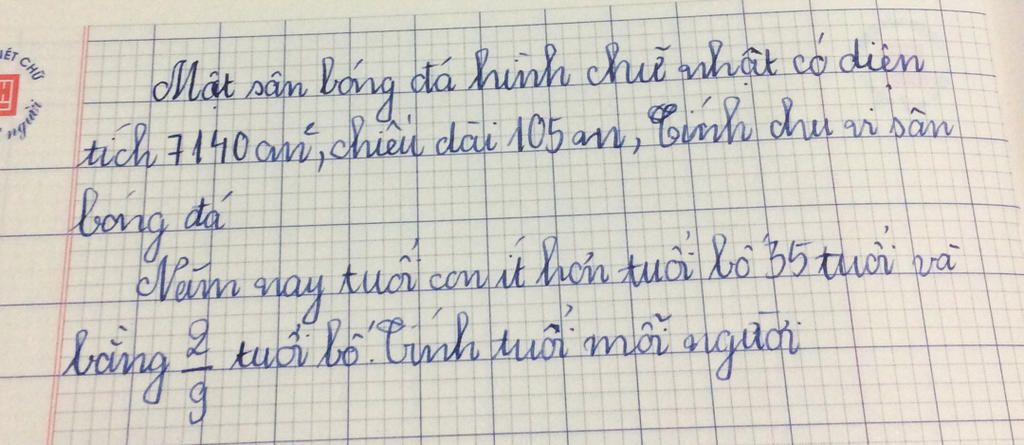 IẾT CHỮ
người
Một sân bóng đá hình chữ nhật có diện
tích 7140 cm², chiều dài 105 cm, Tính chu vi sân
bóng đá
Năm nay tuổi con ít hơn tuổi bố 35 tuổi và
bằng 2/9 tuổi bố. Tính tuổi mỗi người